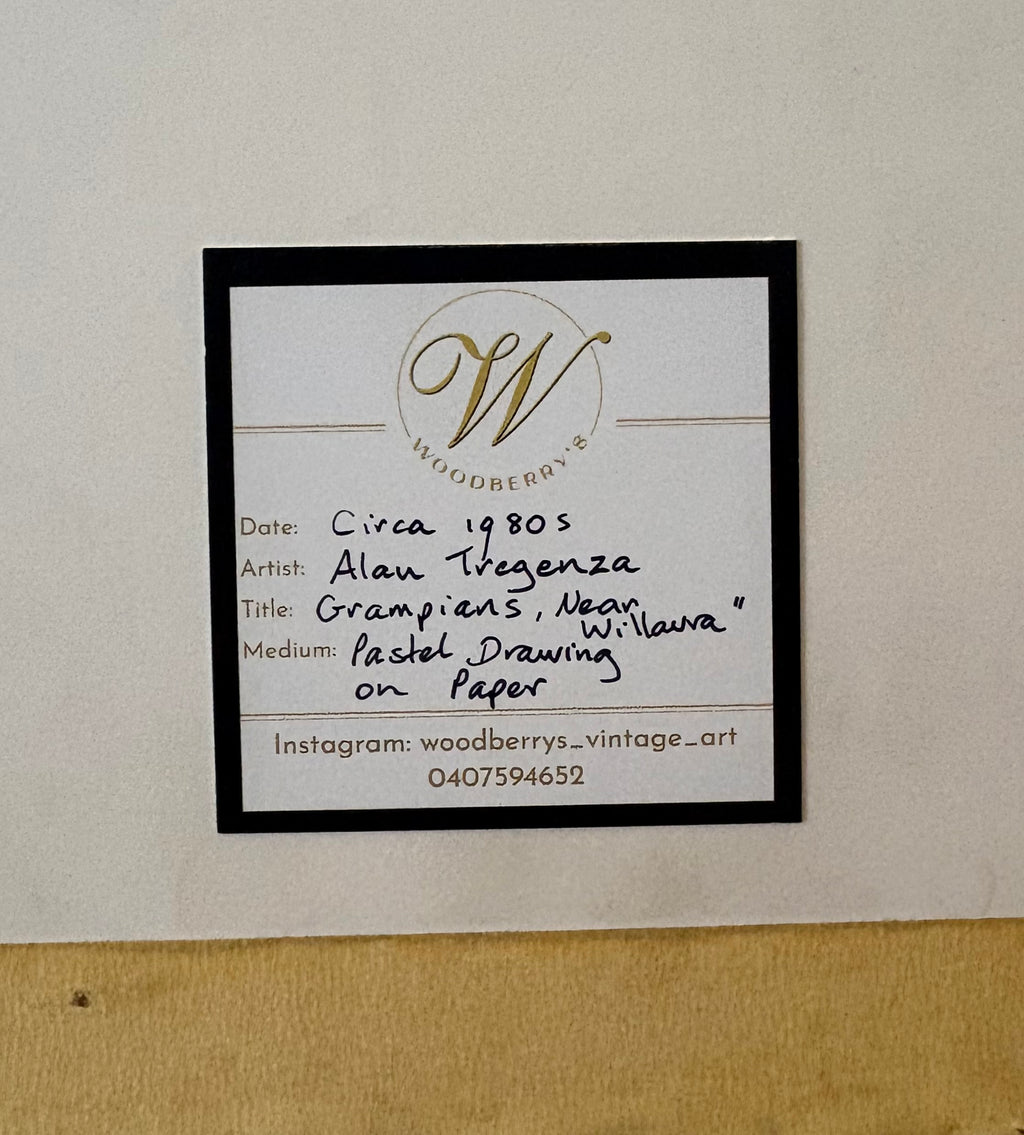 W
WOODBERRY'S
Date: Circa 1980s
Artist: Alan Tregenza
Title: Grampians, Near
Willaura"
Medium: Pastel Drawing
on Paper
Instagram: woodberrys_vintage_art
0407594652